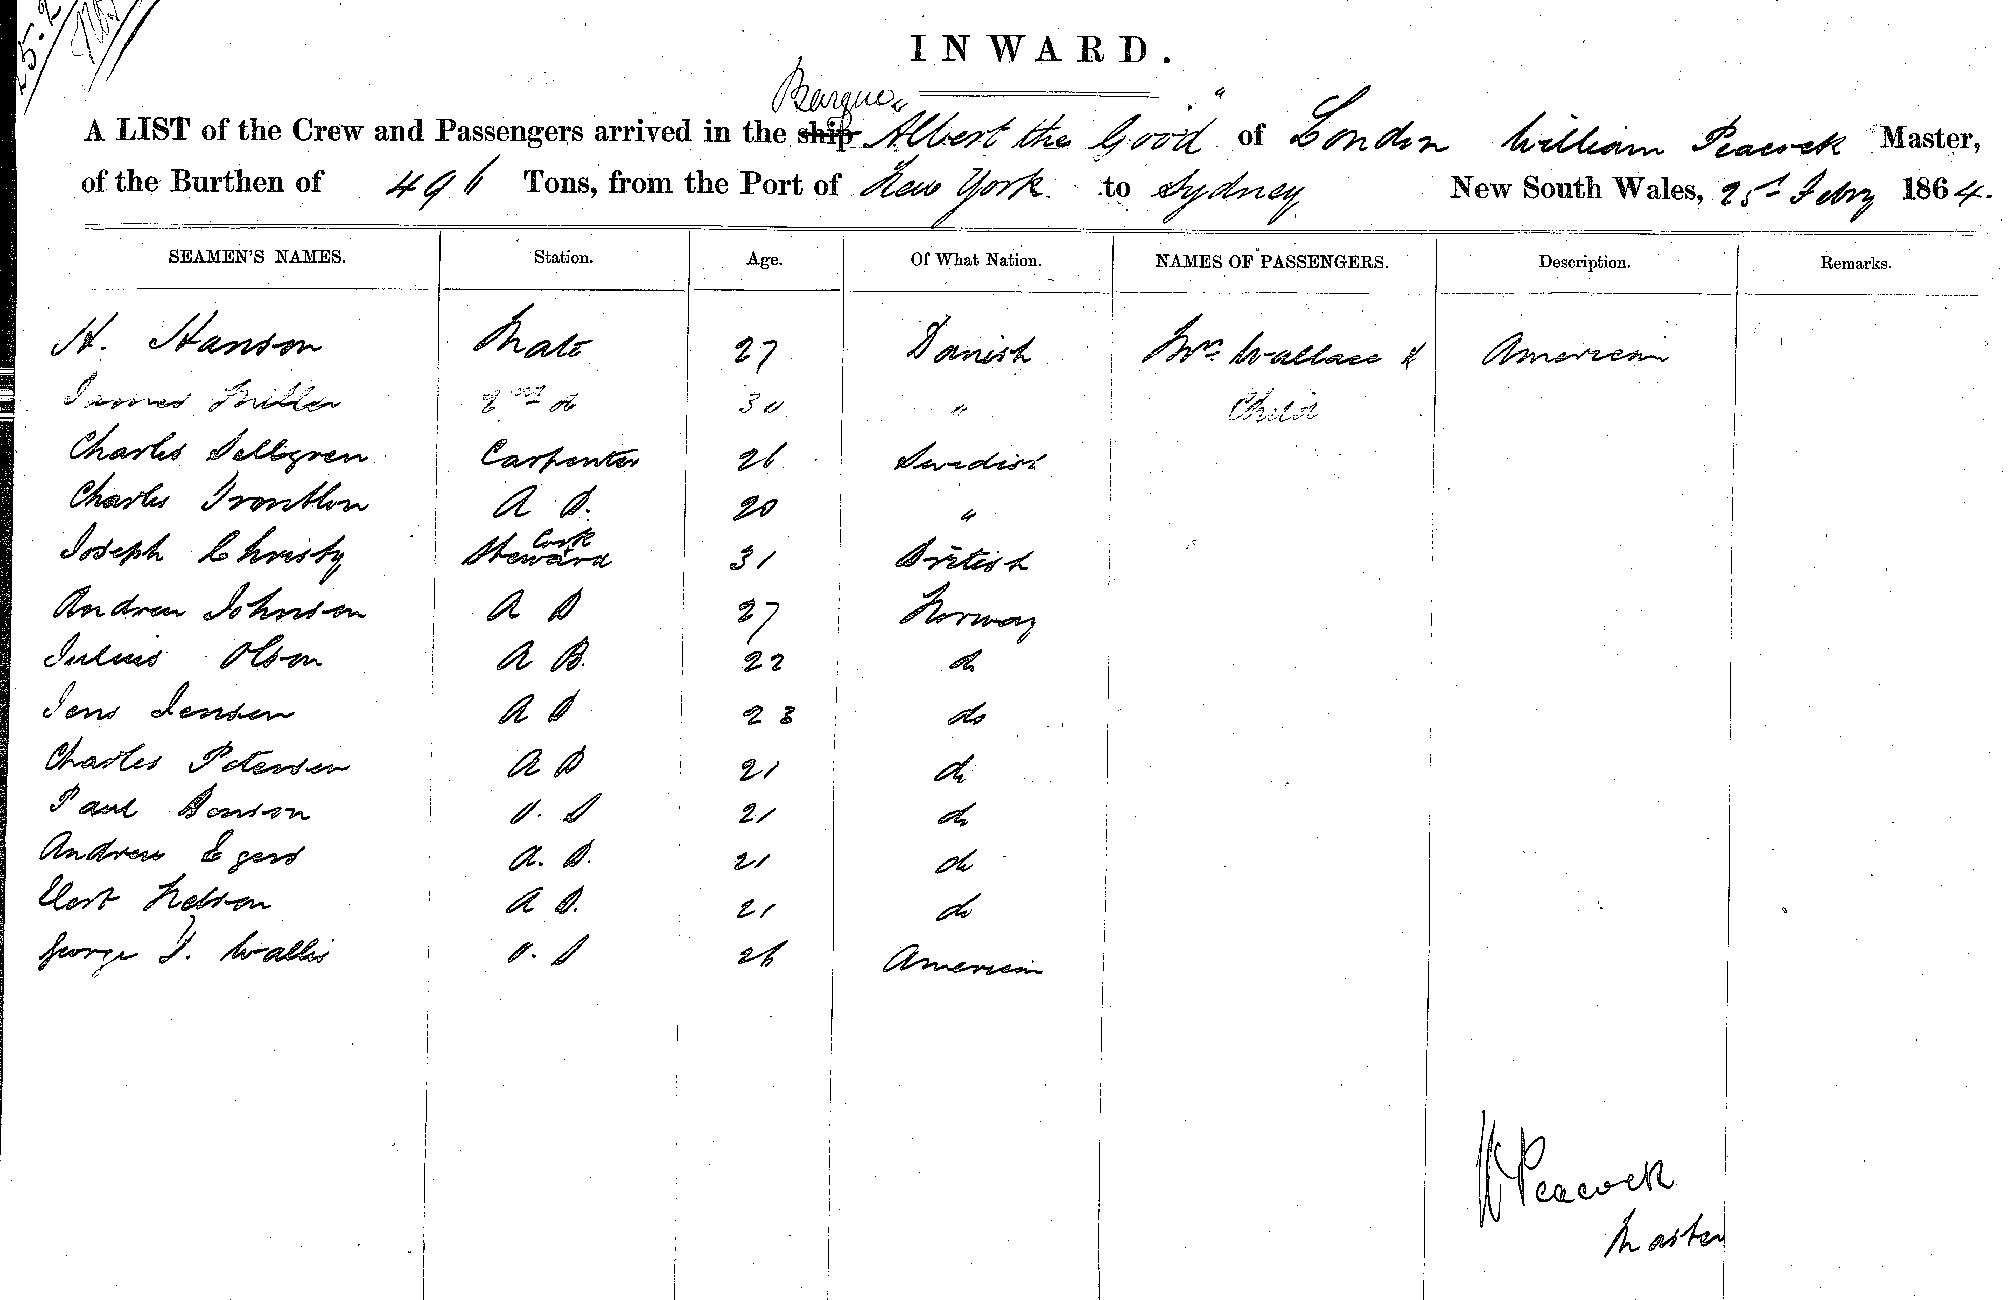 25.2
INWARD.
Barque
A LIST of the Crew and Passengers arrived in the ship "Albert the Good" of London William Peacock Master,
of the Burthen of 496 Tons, from the Port of New York to Sydney New South Wales, 25th Febry 1864.
SEAMEN'S NAMES. Station. Age. Of What Nation. NAMES OF PASSENGERS. Description. Remarks.
H. Hanson Mate 27 Danish Mrs Wallace & American
James Miller 2nd do 30 " Child
Charles Sellgren Carpenter 26 Swedish
Charles A B. 20 "
Cook
Joseph Christy Steward 31 British
Andrew Johnson A B 27 Norway
Julius Olson A B. 22 do
Jens Jensen A B 23 do
Charles Petersen A B 21 do
Paul Bonson O. S 21 do
Andrew Egers A. B. 21 do
Nelson A B. 21 do
George J. Wallis O. S 26 American
W Peacock
Master